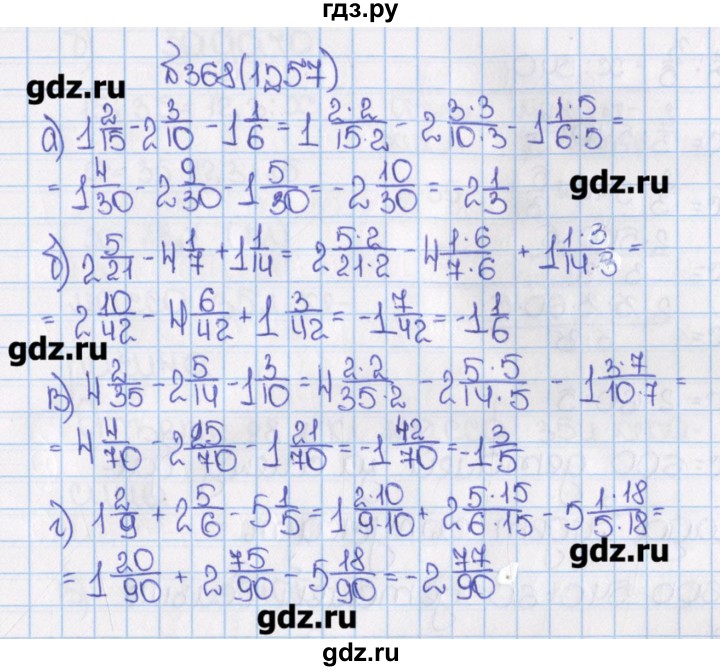 гдз.ру
№368(1257)
gdz.ru
а) 1 2/15 - 2 3/10 - 1 1/6 = 1 2·2/15·2 - 2 3·3/10·3 - 1 1·5/6·5 =
= 1 4/30 - 2 9/30 - 1 5/30 = -2 10/30 = -2 1/3
gdz.ru
б) 2 5/21 - 4 1/7 + 1 1/14 = 2 5·2/21·2 - 4 1·6/7·6 + 1 1·3/14·3 =
= 2 10/42 - 4 6/42 + 1 3/42 = -1 7/42 = -1 1/6
gdz.ru
в) 4 2/35 - 2 5/14 - 1 3/10 = 4 2·2/35·2 - 2 5·5/14·5 - 1 3·7/10·7 =
= 4 4/70 - 2 25/70 - 1 21/70 = -1 42/70 = -1 3/5
г) 1 2/9 + 2 5/6 - 5 1/5 = 1 2·10/9·10 + 2 5·15/6·15 - 5 1·18/5·18 =
gdz.ru
= 1 20/90 + 2 75/90 - 5 18/90 = -2 77/90
gdz.ru
gdz.ru